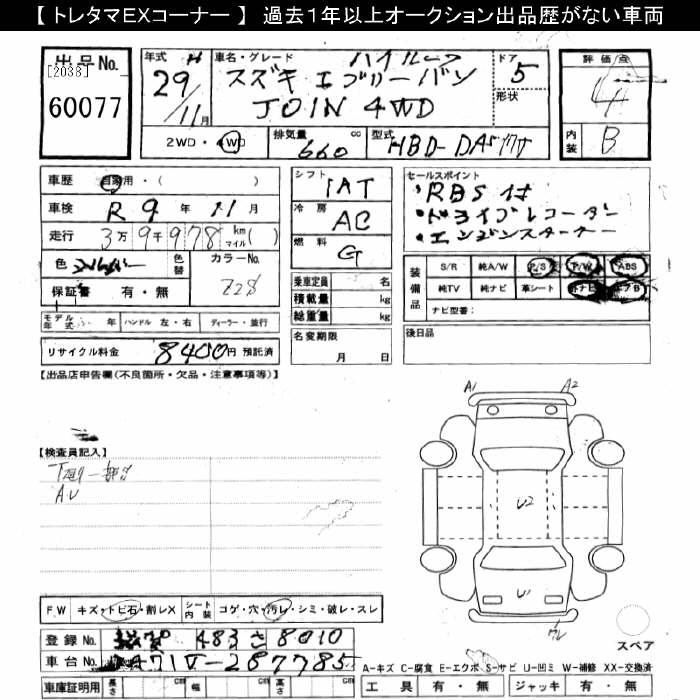 【 トレタマEXコーナー 】 過去1年以上オークション出品歴がない車両
出品No.
[2038]
60077
年式 H
29/11月
車名・グレード ハイルーフ
スズキ エブリーバン
JOIN 4WD
ドア
5
形状
評価点
4
内装 B
2WD・4WD
排気量 660 cc
型式 HBD-DA17V
車歴 自家用・( )
車検 R 9 年 11 月
走行 3万9千978 km マイル( )
色 シルバー
色替
カラーNo. Z2S
保証書 有・無
モデル年式 年 ハンドル 左・右 ディーラー・並行
リサイクル料金 8400円 預託済
シフト IAT
冷房 AC
燃料 G
乗車定員 名
積載量 kg
総重量 kg
名変期限
月 日
セールスポイント
・RBS付
・ドライブレコーダー
・エンジンスターター
装備品
S/R 純A/W P/S P/W ABS
純TV 純ナビ 革シート 外ナビ エアB
ナビ型番:
後日品
【出品店申告欄(不良箇所・欠品・注意事項等)】
【検査員記入】
A1 A2
U2
U1
スペア
F.W キズ・トビ石・割レX
シート内装 コゲ・穴・汚レ・シミ・破レ・スレ
登録No. 483 さ 8010
車台No. A71V-287785
車庫証明用 長さ cm 幅 cm 高さ cm
A-キズ C-腐食 E-エクボ S-サビ U-凹ミ W-補修 XX-交換済
工具 有・無 ジャッキ 有・無